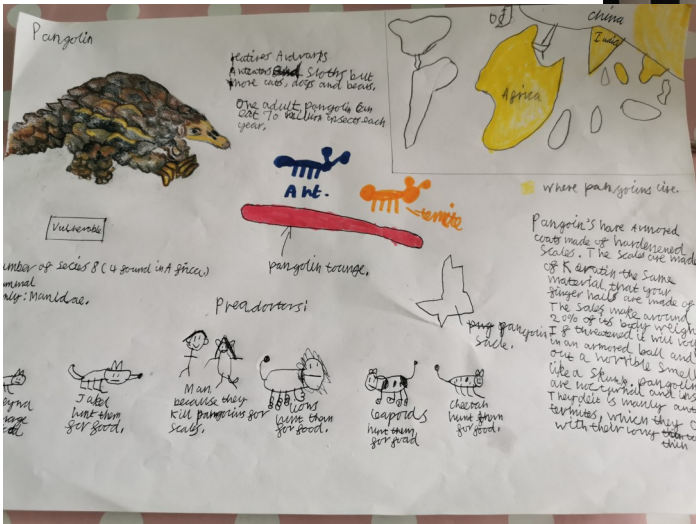 Pangolin
reatires Advarts
Anteaters Sloths but
more cats, dogs and bears.
One adult pangolin can
eat 70 million insects each
year.
china
India
Africa
where pangolins live.
Ant.
termite
pangolin tounge.
Vulnerable
umber of series 8 (4 found in Africa)
ammal
mily: Manidae.
Preadortors:
pangolin
Scale.
Pangolin's have Armored
coats made of hardenened
Scales. The scale are made
of Keratin the same
material, that your
finger nails are made of
The Scales make around
20% of its body weigh
If threatened it will roll
in an armored ball and
out a horrible smell
like a skunk. pangolin
are nocturnal and ins
They deit is mainly an
termites, which they c
with their long
thin
Jakel
hunt them
for food.
Man
because they
kill pangolins for
scales.
lions
hunt them
for food.
Leapoids
hunt them
for food
cheetah
hunt them
for food.